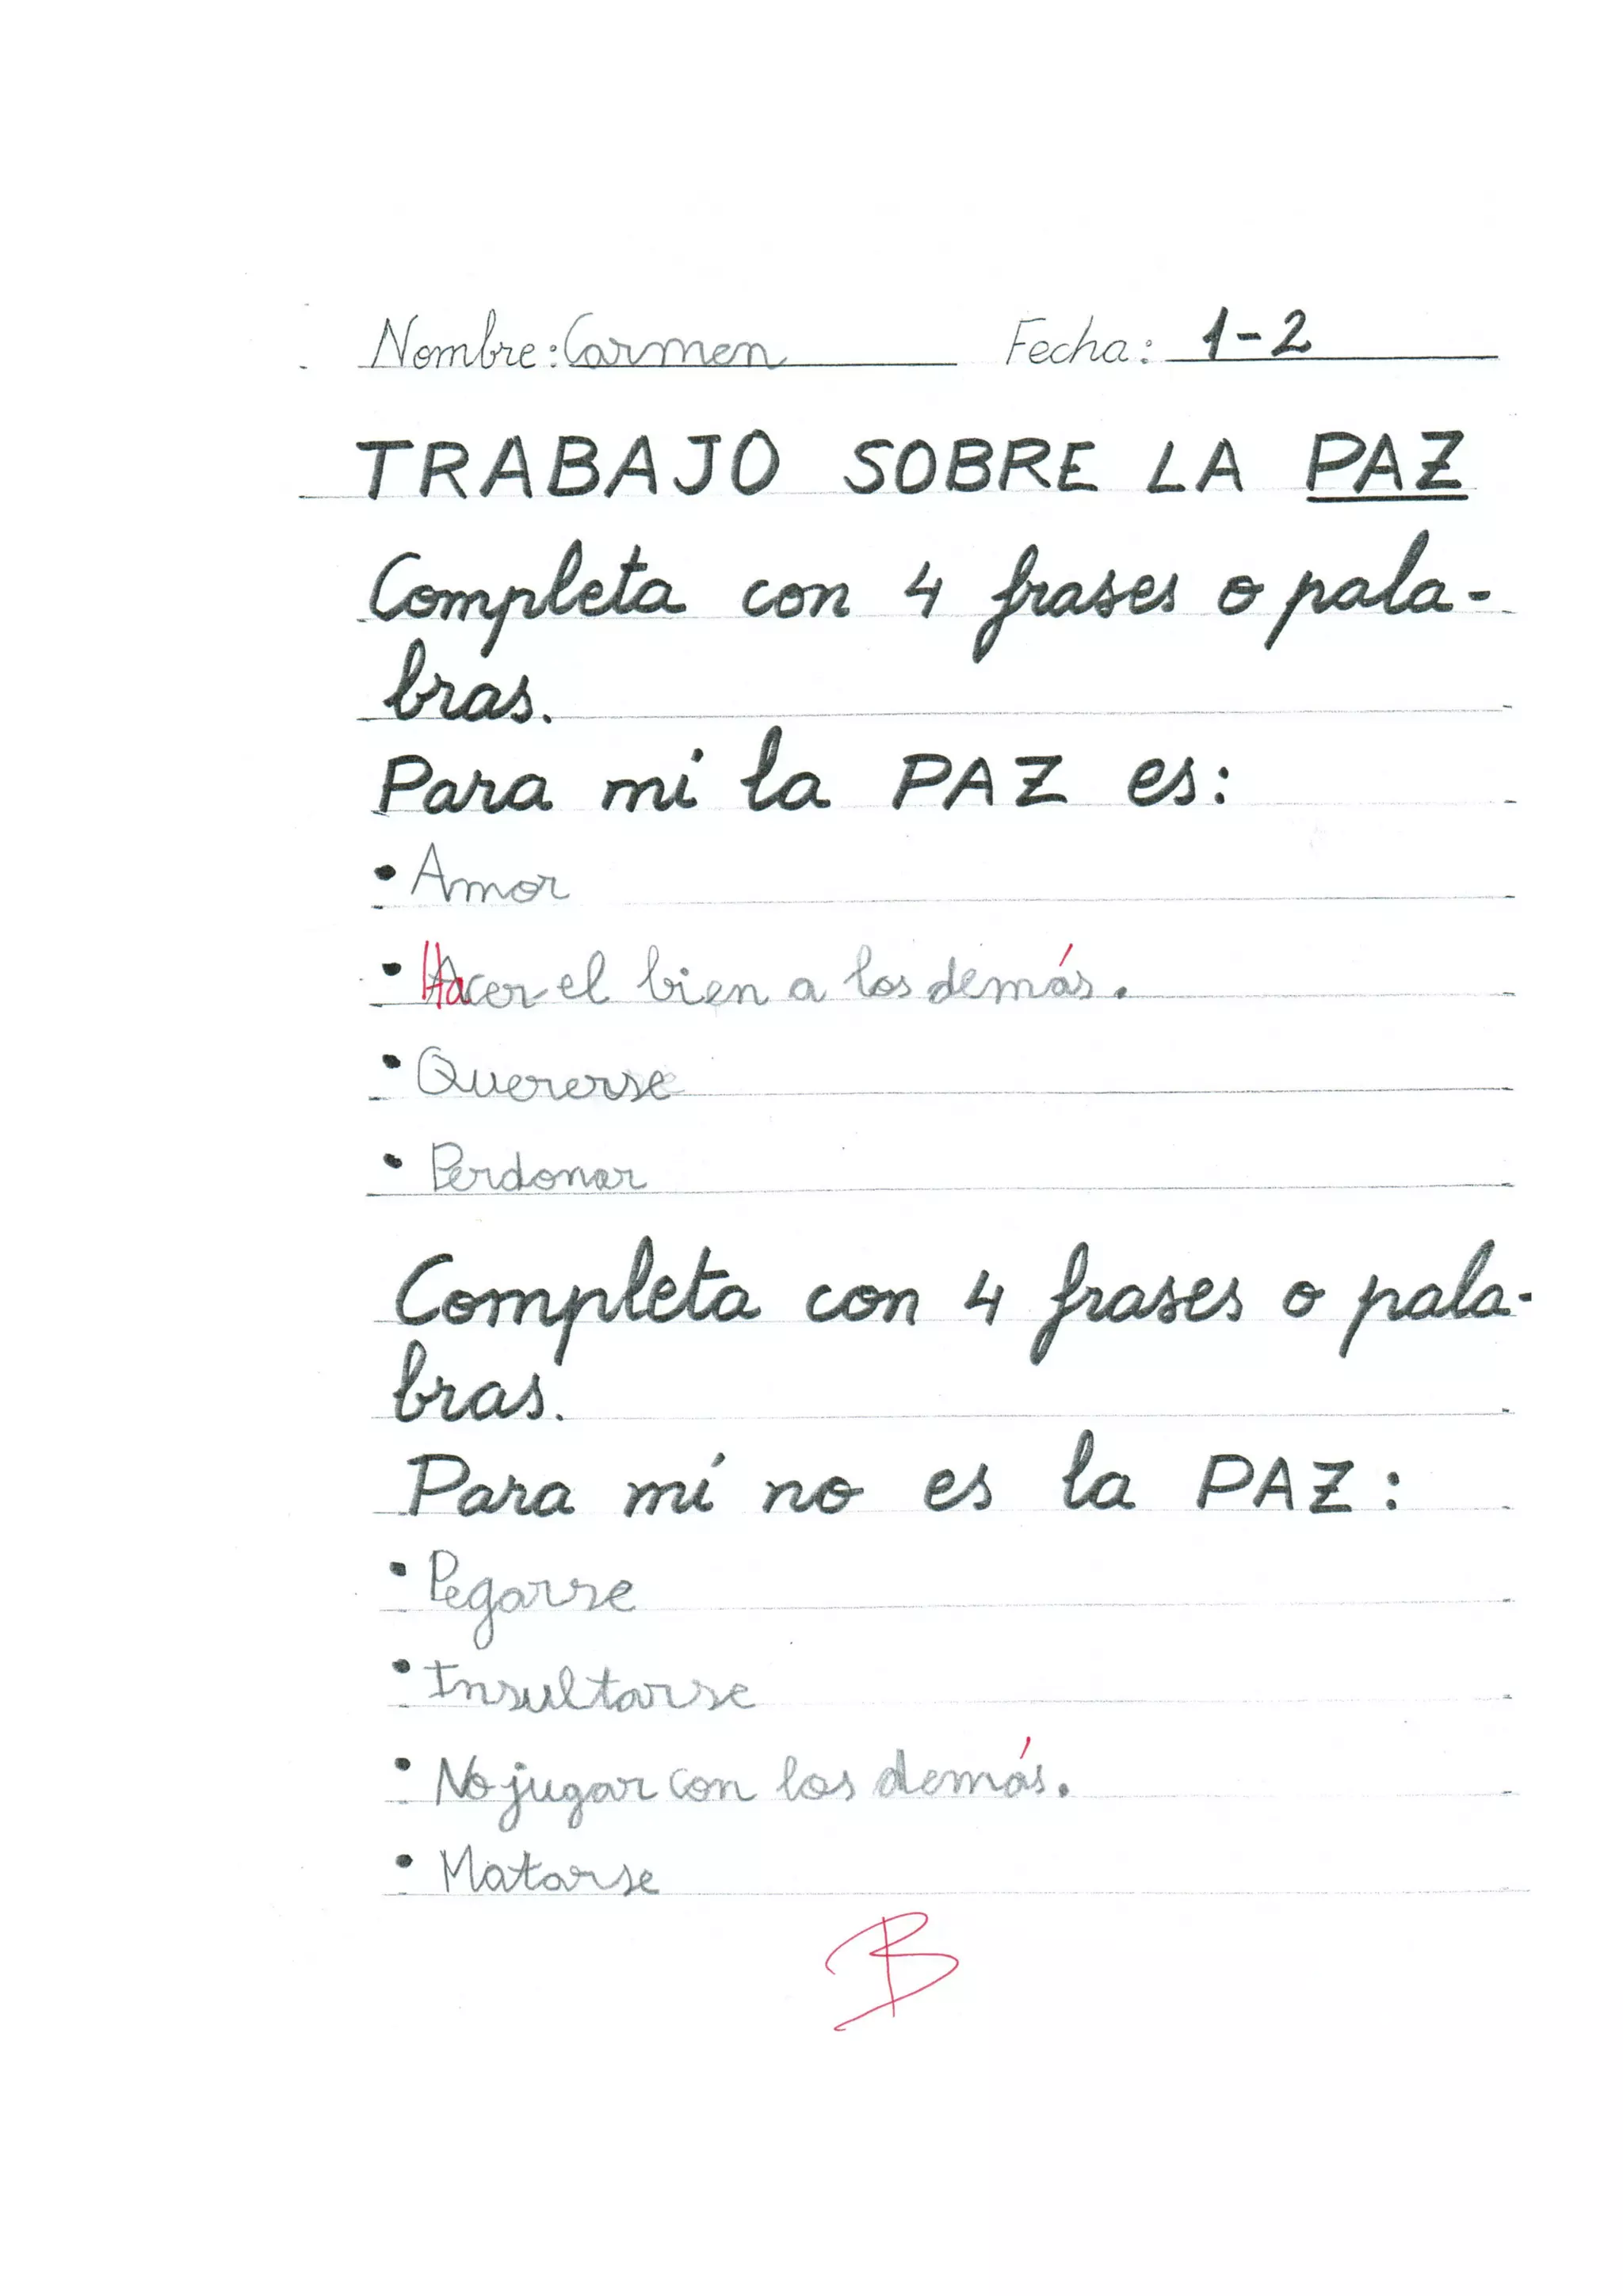 Nombre: Carmen Fecha: 1-2
TRABAJO SOBRE LA PAZ
Completa con 4 frases o pala-
bras.
Para mi la PAZ es:
• Amor
• Hacer el bien a los demás.
• Quererse
• Perdonar
Completa con 4 frases o pala-
bras.
Para mí no es la PAZ:
• Pegarse
• Insultarse
• No jugar con los demás.
• Matarse
B